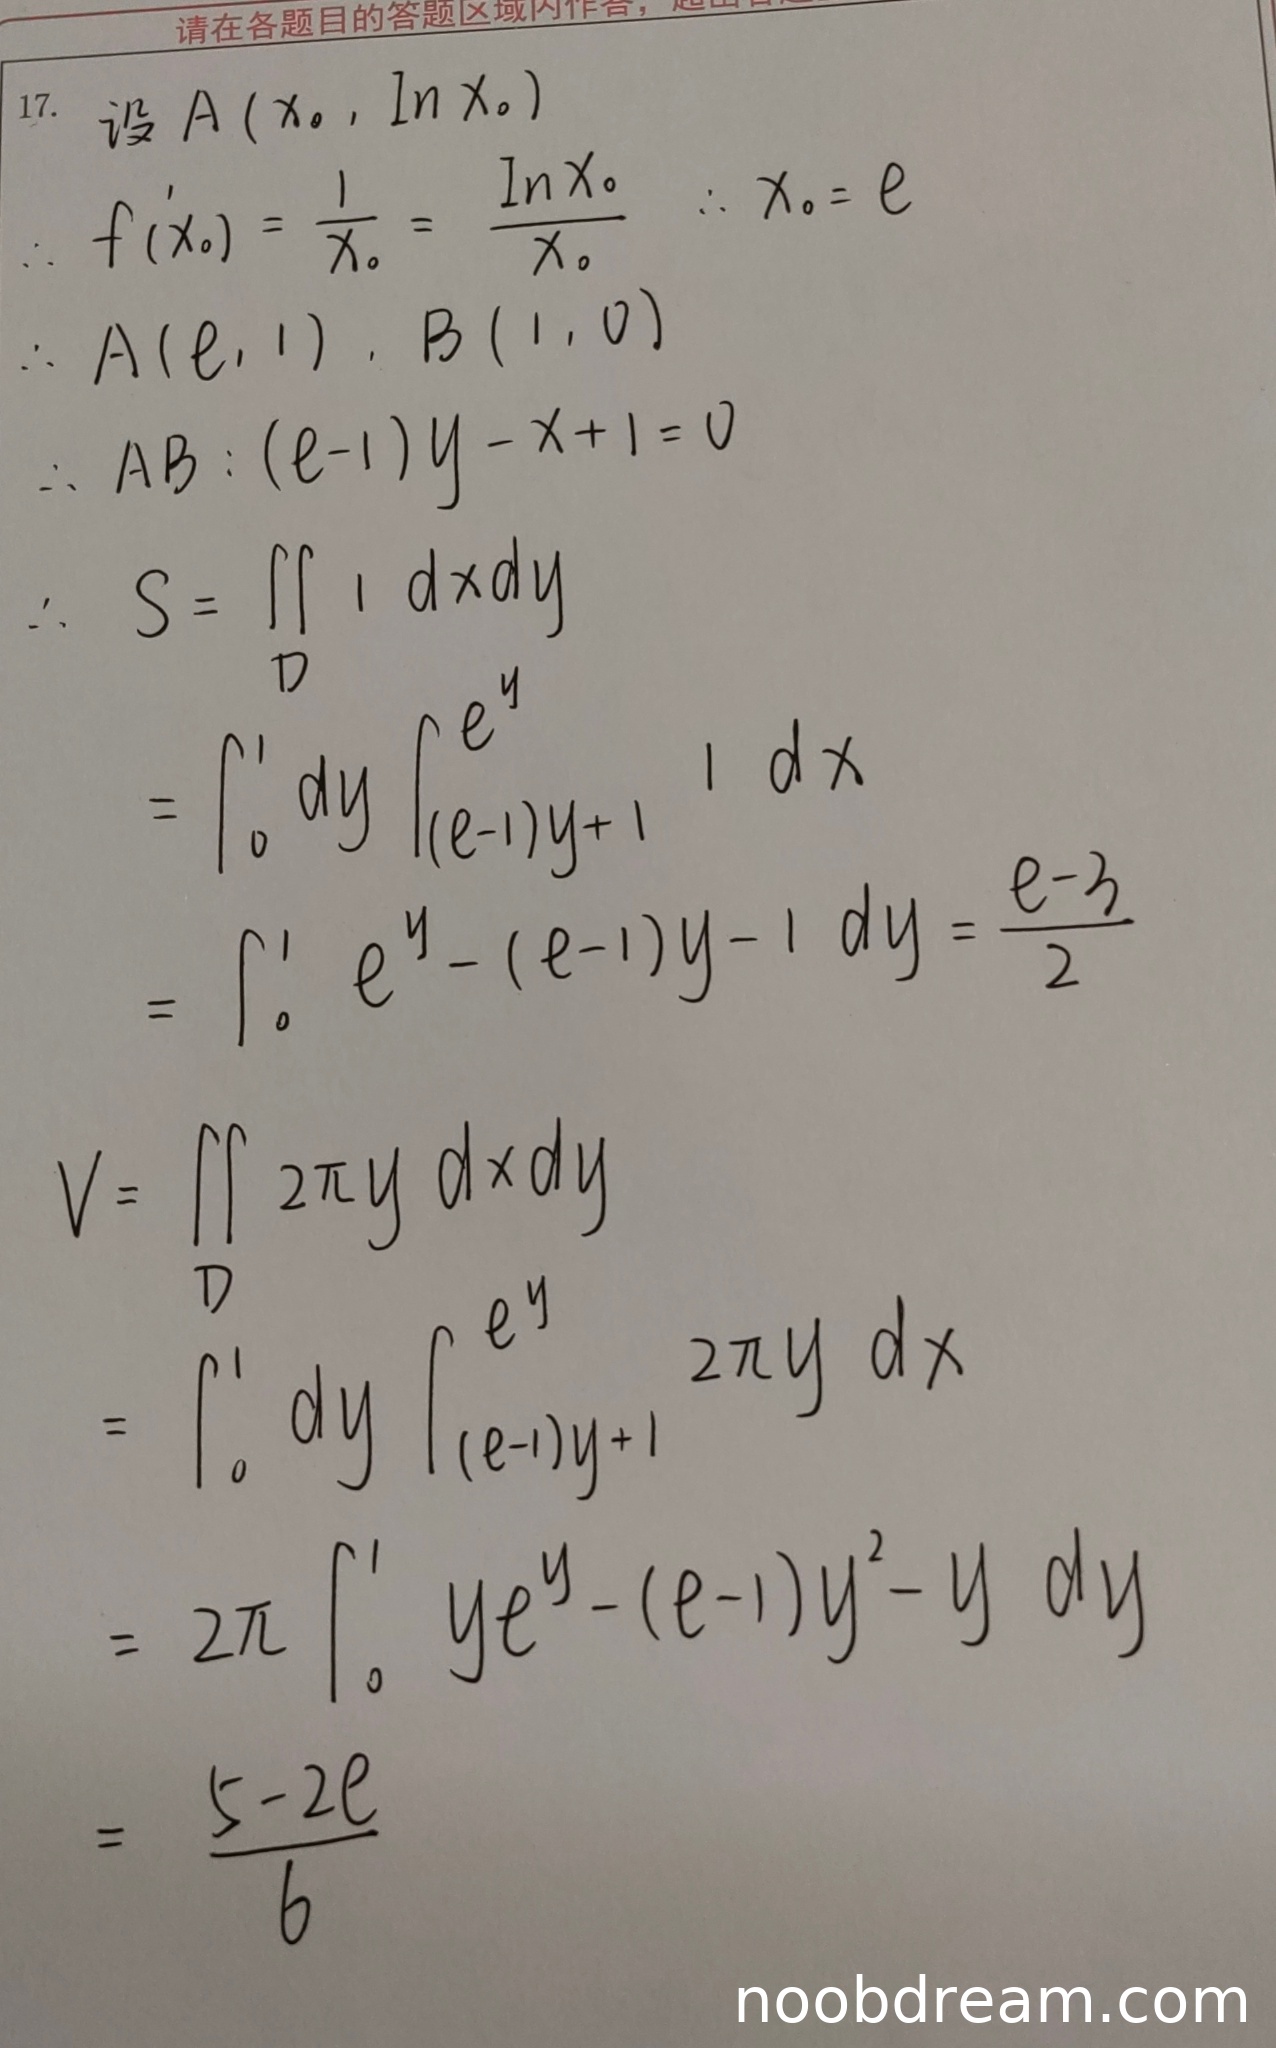 请在各题目的答题区域内作答，超出答题
17. 设 A(x₀, ln x₀)
∴ f'(x₀) = 1/x₀ = ln x₀/x₀ ∴ x₀ = e
∴ A(e, 1), B(1, 0)
∴ AB: (e-1)y - x + 1 = 0
∴ S = ∬_D 1 dxdy
= ∫₀¹ dy ∫_{(e-1)y+1}^{e^y} 1 dx
= ∫₀¹ e^y - (e-1)y - 1 dy = (e-3)/2
V = ∬_D 2πy dxdy
= ∫₀¹ dy ∫_{(e-1)y+1}^{e^y} 2πy dx
= 2π ∫₀¹ ye^y - (e-1)y² - y dy
= (5-2e)/6
noobdream.com